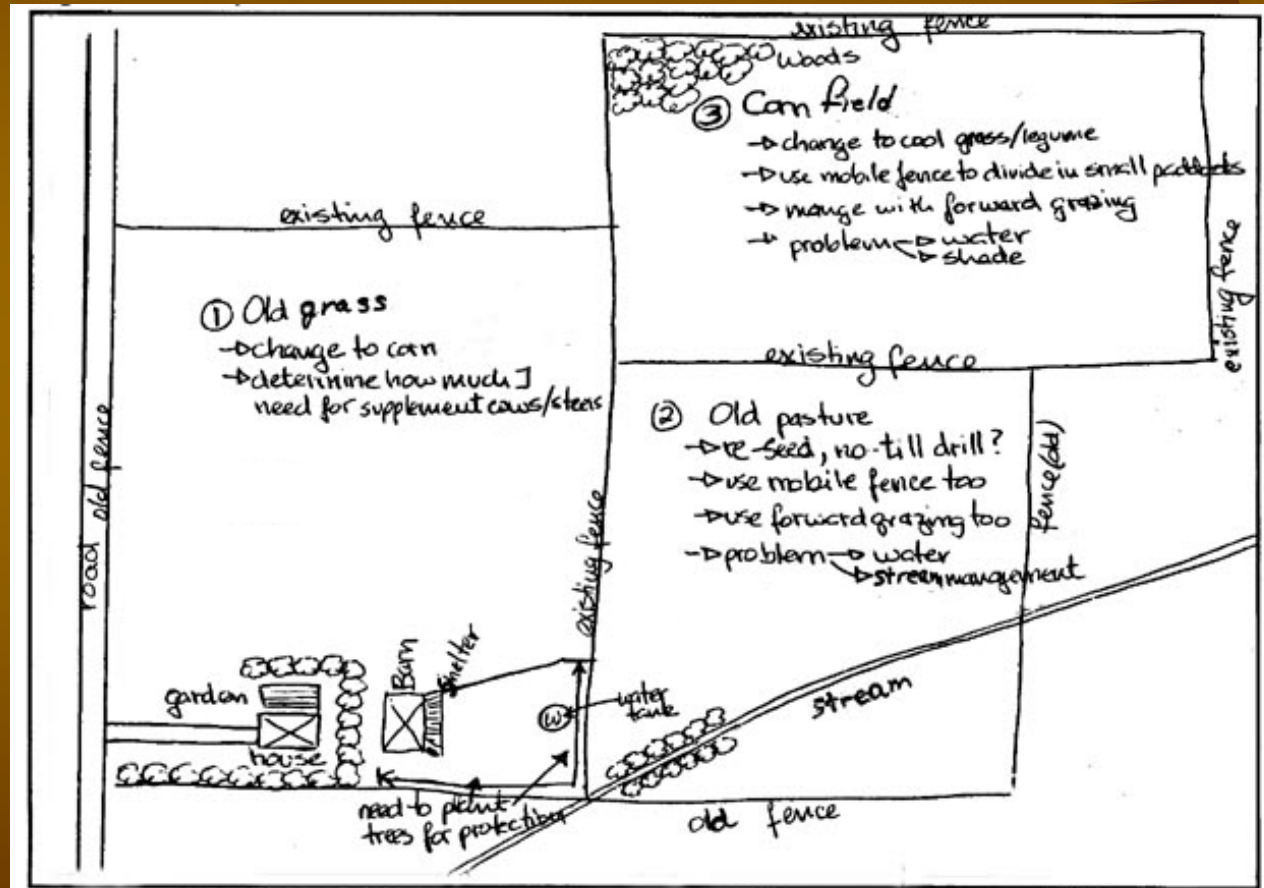 existing fence
woods
③ Corn field
→ change to cool grass/legume
→ use mobile fence to divide in small paddocks
→ mange with forward grazing
→ problem → water
→ shade
existing fence
existing fence
① Old grass
→ change to corn
→ determine how much I
need for supplement cows/steers
existing fence
② Old pasture
→ re-seed, no-till drill?
→ use mobile fence too
→ use forward grazing too
→ problem → water
→ stream mangement
fence (old)
old fence
road
existing fence
Barn
shelter
garden
house
W
water
tank
stream
need to plant
trees for protection
old fence